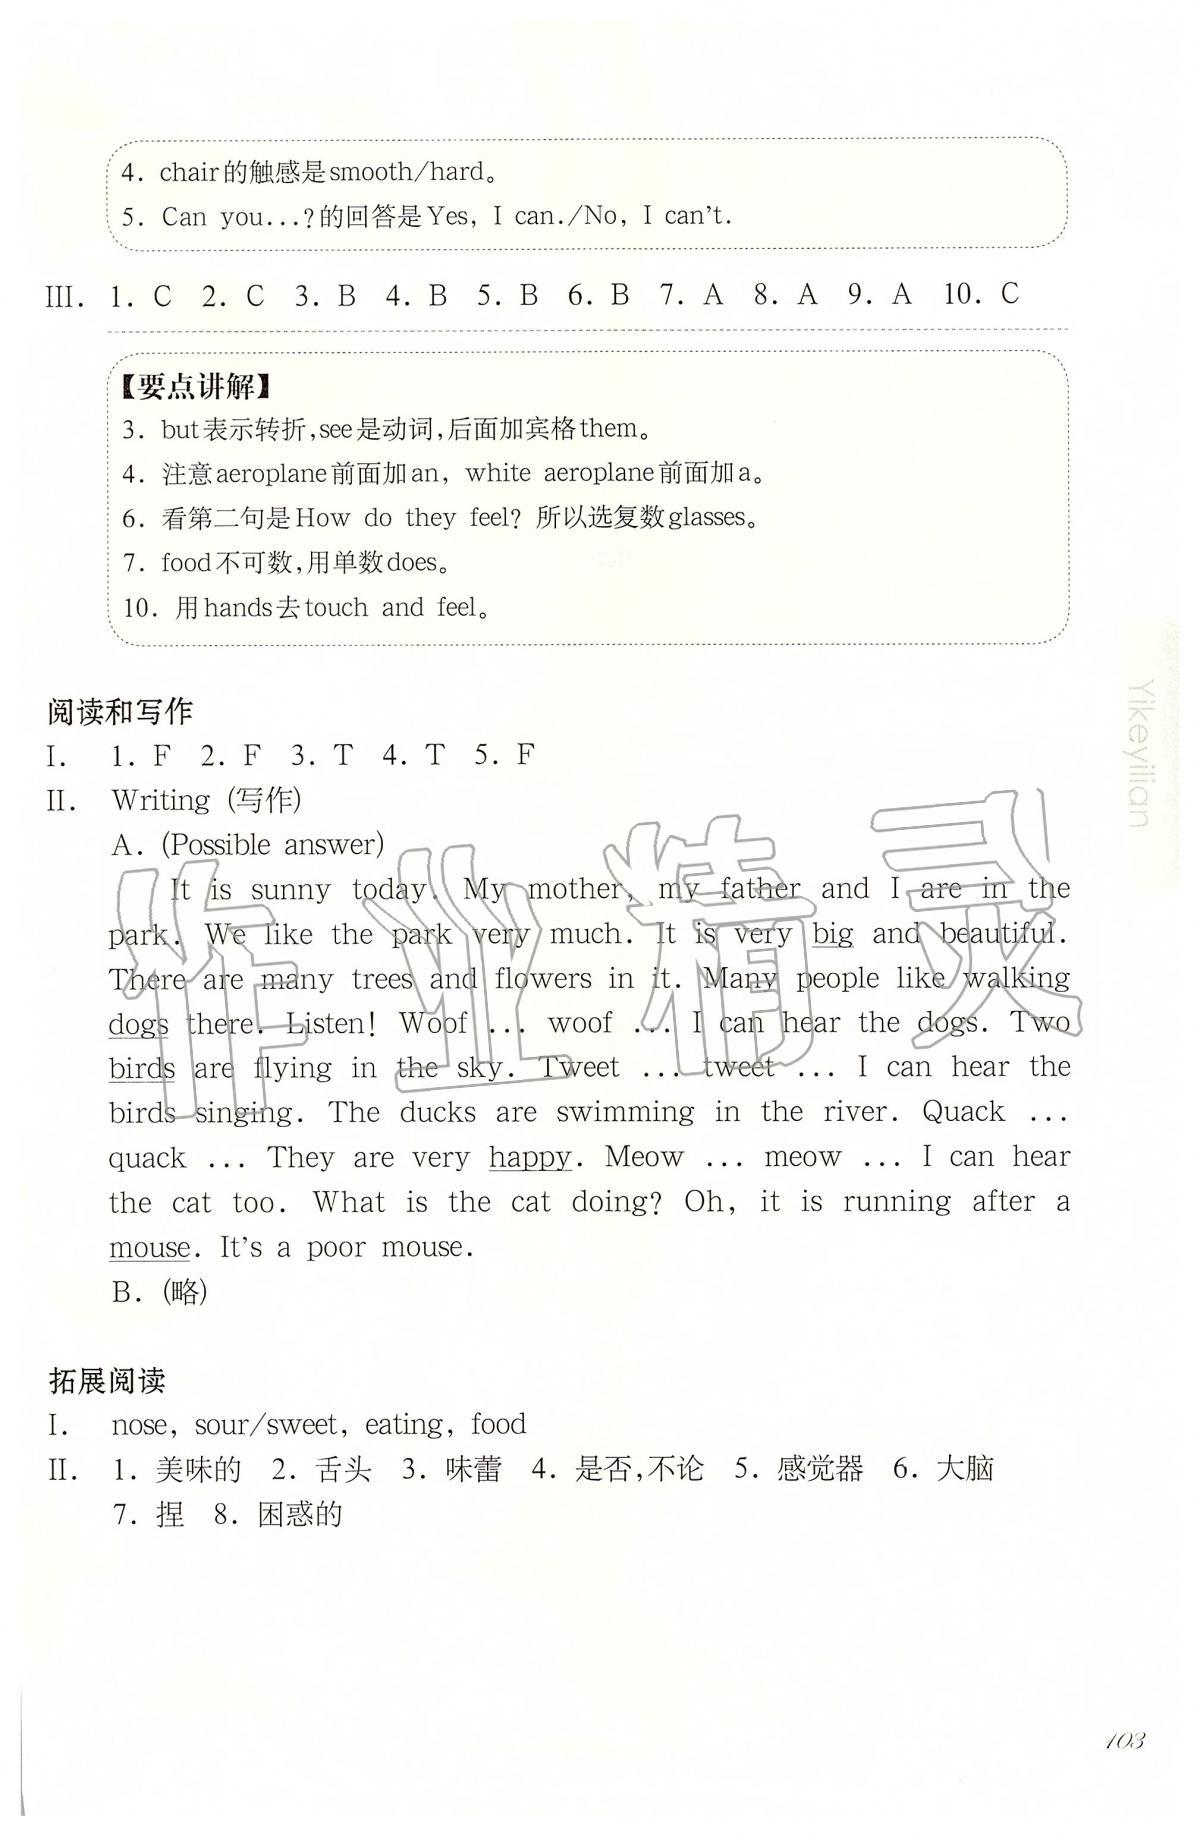 4. chair的触感是smooth/hard。
5. Can you...?的回答是Yes, I can./No, I can't.
III. 1. C 2. C 3. B 4. B 5. B 6. B 7. A 8. A 9. A 10. C
【要点讲解】
3. but表示转折,see是动词,后面加宾格them。
4. 注意aeroplane前面加an, white aeroplane前面加a。
6. 看第二句是How do they feel? 所以选复数glasses。
7. food不可数,用单数does。
10. 用hands去touch and feel。
Yikeyilian
阅读和写作
I. 1. F 2. F 3. T 4. T 5. F
II. Writing (写作)
A. (Possible answer)
It is sunny today. My mother, my father and I are in the
park. We like the park very much. It is very big and beautiful.
There are many trees and flowers in it. Many people like walking
dogs there. Listen! Woof ... woof ... I can hear the dogs. Two
birds are flying in the sky. Tweet ... tweet ... I can hear the
birds singing. The ducks are swimming in the river. Quack ...
quack ... They are very happy. Meow ... meow ... I can hear
the cat too. What is the cat doing? Oh, it is running after a
mouse. It's a poor mouse.
B. (略)
作业精灵
拓展阅读
I. nose, sour/sweet, eating, food
II. 1. 美味的 2. 舌头 3. 味蕾 4. 是否,不论 5. 感觉器 6. 大脑
7. 捏 8. 困惑的
103